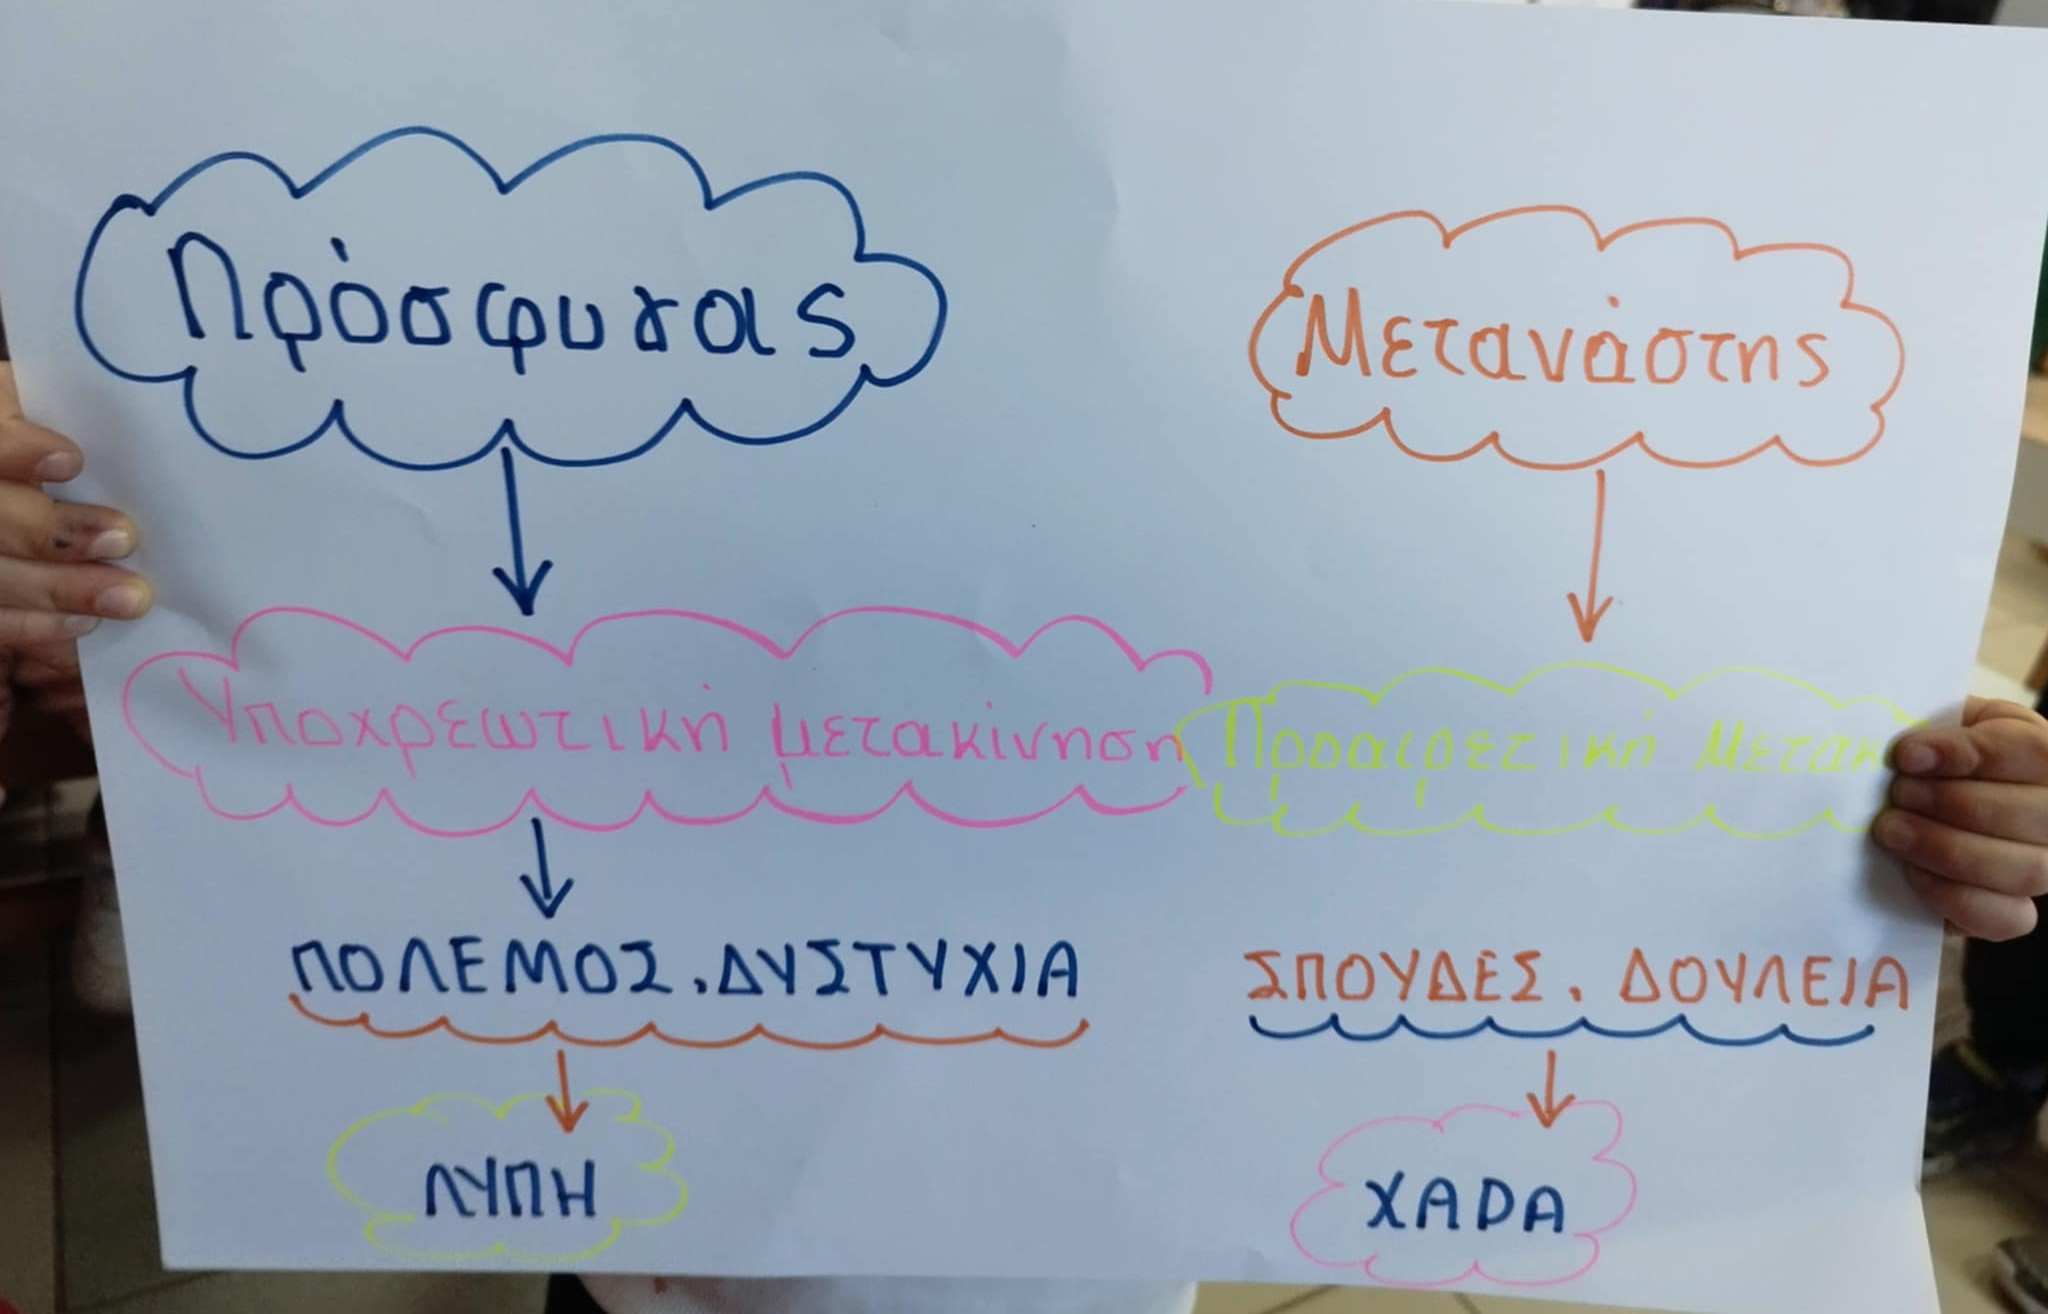 Πρόσφυγας
Μετανάστης
Υποχρεωτική μετακίνηση
Προαιρετική Μετακ
ΠΟΛΕΜΟΣ, ΔΥΣΤΥΧΙΑ
ΣΠΟΥΔΕΣ, ΔΟΥΛΕΙΑ
ΛΥΠΗ
ΧΑΡΑ